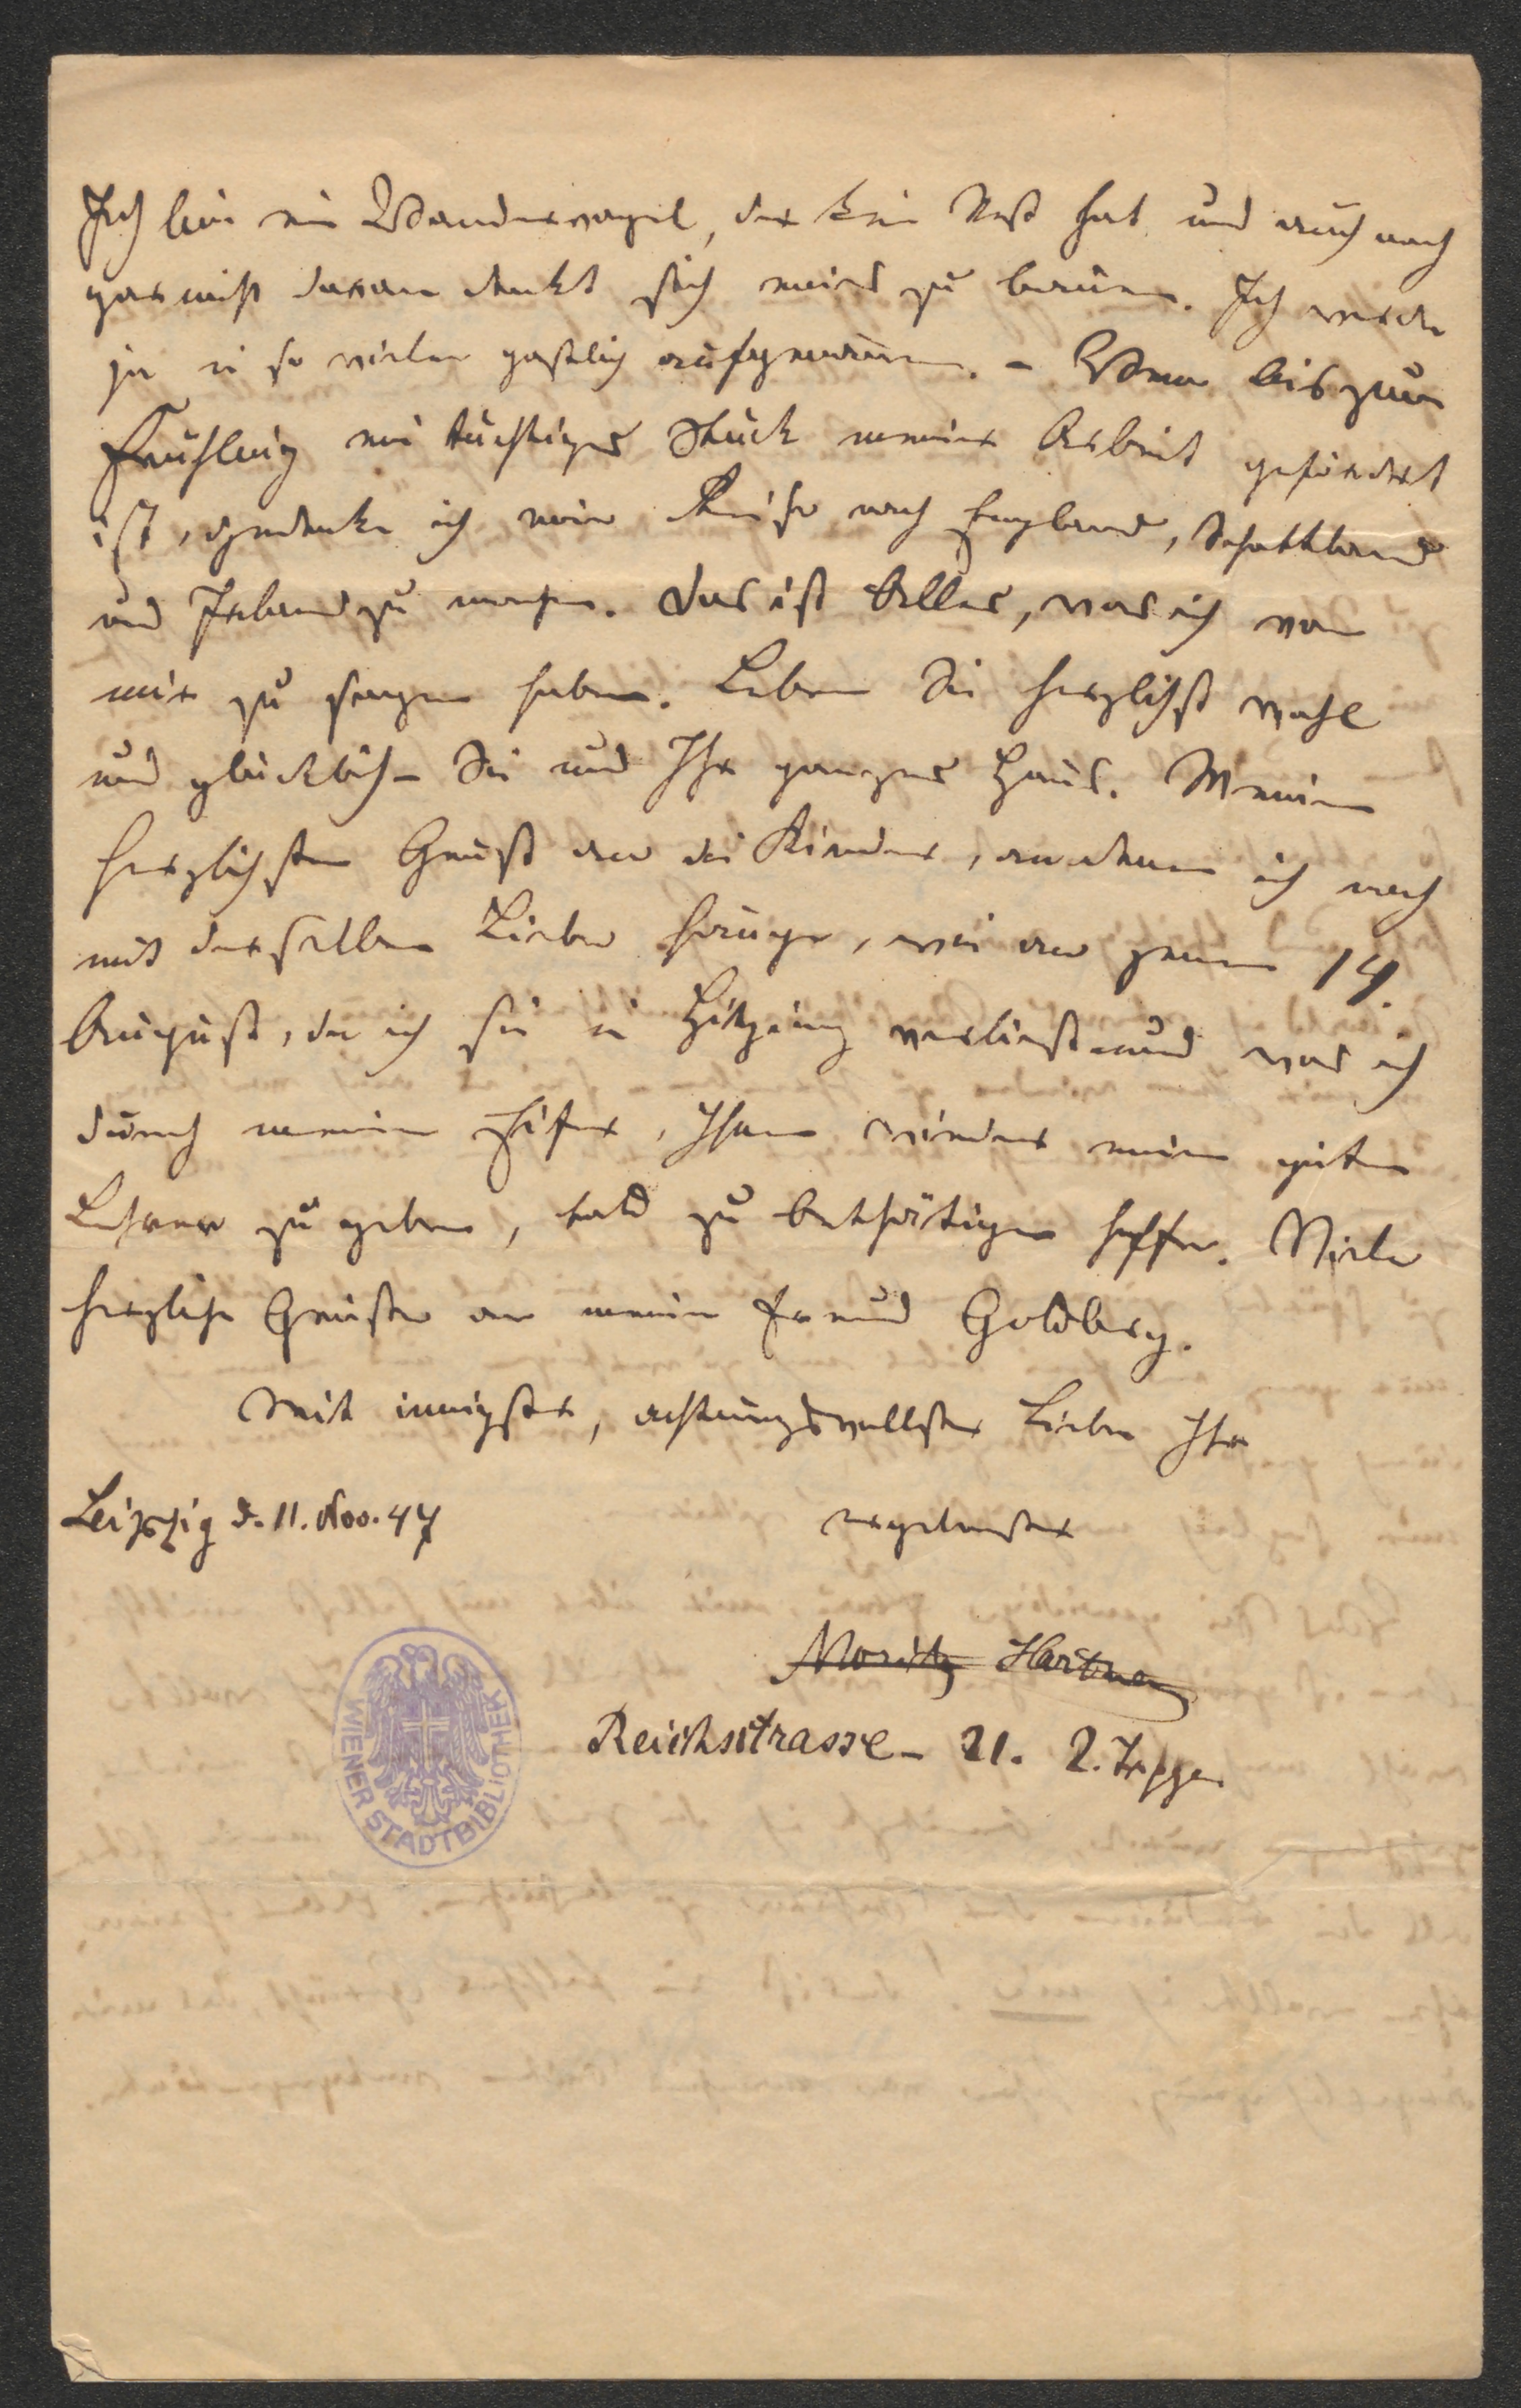 Ich bin ein Wandervogel, der kein Nest hat und auch noch
gar nicht daran denkt sich eines zu bauen. Ich werde
ja in so vielen gastlich aufgenommen. – Wenn bis zum
Frühling ein tüchtiges Stück meiner Arbeit gefördert
ist, gedenke ich eine Reise nach England, Schottland
und Irland zu machen. Das ist Alles, was ich von
mir zu sagen habe. Leben Sie herzlichst wohl
und glücklich – Sie und Ihr ganzes Haus. Meinen
herzlichsten Gruß an die Kinder, an denen ich noch
mit derselben Liebe hänge, wie an jenem 14.
August, da ich sie in Hitzing verließ und was ich
durch meinen Eifer, Ihnen wieder einen guten
Lehrer zu geben, bald zu bethätigen hoffe. Viele
herzliche Grüße an meinen Freund Goldberg.
Mit innigster, achtungsvollster Liebe Ihr
Leipzig d. 11. Nov. 47
ergebenster
Moritz Hartmann
Reichsstrasse – 21. 2. Treppen
WIENER STADTBIBLIOTHEK